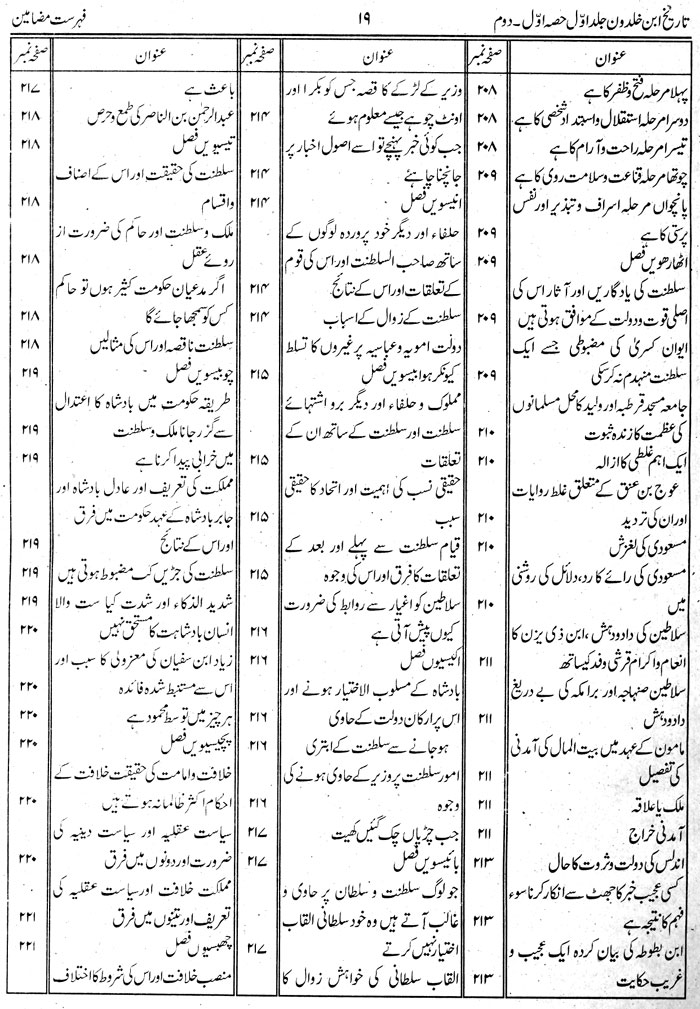 تاریخ ابن خلدون جلد اوّل حصہ اوّل ۔ دوم
۱۹
فہرست مضامین
عنوان
صفحہ نمبر
پہلا مرحلہ فتح و ظفر کا ہے ۲۰۸
دوسرا مرحلہ استقلال و استبداد شخصی کا ہے ۲۰۸
تیسرا مرحلہ راحت و آرام کا ہے ۲۰۸
چوتھا مرحلہ قناعت و سلامت روی کا ہے ۲۰۹
پانچواں مرحلہ اسراف و تبذیر اور نفس
پرستی کا ہے ۲۰۹
اٹھارھویں فصل ۲۰۹
سلطنت کی یادگاریں اور آثار اس کی
اصلی قوت و دولت کے موافق ہوتی ہیں ۲۰۹
ایوان کسریٰ کی مضبوطی جسے ایک
سلطنت منہدم نہ کر سکی ۲۰۹
جامعہ مسجد قرطبہ اور ولید کا محل مسلمانوں
کی عظمت کا زندہ ثبوت ۲۱۰
ایک اہم غلطی کا ازالہ ۲۱۰
عوج بن عنق کے متعلق غلط روایات
اور ان کی تردید ۲۱۰
مسعودی کی لغزش ۲۱۰
مسعودی کی رائے کا رد، دلائل کی روشنی
میں ۲۱۰
سلاطین کی داد و دہش، ابن ذی یزن کا
انعام و اکرام قرشی وفد کیساتھ ۲۱۱
سلاطین صنہاجہ اور برامکہ کی بے دریغ
داد و دہش ۲۱۱
مامون کے عہد میں بیت المال کی آمدنی
کی تفصیل ۲۱۱
ملک یا علاقہ ۲۱۱
آمدنی خراج ۲۱۱
اندلس کی دولت و ثروت کا حال ۲۱۳
کسی عجیب خبر کا جھٹ سے انکار کرنا سوء
فہم کا نتیجہ ہے ۲۱۳
ابن بطوطہ کی بیان کردہ ایک عجیب و
غریب حکایت ۲۱۳
عنوان
صفحہ نمبر
وزیر کے لڑکے کا قصہ جس کو بکرا اور
اونٹ چوہے جیسے معلوم ہوئے ۲۱۴
جب کوئی خبر پہنچے تو اسے اصول اخبار پر
جانچنا چاہئے ۲۱۴
انیسویں فصل ۲۱۴
حلفاء اور دیگر خود پروردہ لوگوں کے
ساتھ صاحب السلطنت اور اس کی قوم
کے تعلقات اور اس کے نتائج ۲۱۴
سلطنت کے زوال کے اسباب ۲۱۴
دولت امویہ و عباسیہ پر غیروں کا تسلط
کیونکر ہوا بیسویں فصل ۲۱۵
مملوک و حلفاء اور دیگر برو اشتہائے
سلطنت اور سلطنت کے ساتھ ان کے
تعلقات ۲۱۵
حقیقی نسب کی اہمیت اور اتحاد کا حقیقی
سبب ۲۱۵
قیام سلطنت سے پہلے اور بعد کے
تعلقات کا فرق اور اس کی وجوہ ۲۱۵
سلاطین کو اغیار سے روابط کی ضرورت
کیوں پیش آتی ہے ۲۱۶
اکیسویں فصل ۲۱۶
بادشاہ کے مسلوب الاختیار ہونے اور
اس پر ارکان دولت کے حاوی ۲۱۶
ہو جانے سے سلطنت کے ابتری ۲۱۶
امور سلطنت پر وزیر کے حاوی ہونے کی
وجوہ ۲۱۶
جب چڑیاں چگ گئیں کھیت ۲۱۷
بائیسویں فصل ۲۱۷
جو لوگ سلطنت و سلطان پر حاوی و
غالب آتے ہیں وہ خود سلطانی القاب
اختیار نہیں کرتے ۲۱۷
القاب سلطانی کی خواہش زوال کا
عنوان
صفحہ نمبر
باعث ہے ۲۱۷
عبدالرحمٰن بن الناصر کی طمع و حرص ۲۱۸
تیسویں فصل ۲۱۸
سلطنت کی حقیقت اور اس کے اصناف
واقسام ۲۱۸
ملک و سلطنت اور حاکم کی ضرورت از
روئے عقل ۲۱۸
اگر مدعیان حکومت کثیر ہوں تو حاکم
کس کو سمجھا جائے گا ۲۱۸
سلطنت ناقصہ اور اس کی مثالیں ۲۱۸
چوبیسویں فصل ۲۱۹
طریقہ حکومت میں بادشاہ کا اعتدال
سے گزر جانا ملک و سلطنت ۲۱۹
میں خرابی پیدا کرنا ہے ۲۱۹
مملکت کی تعریف اور عادل بادشاہ اور
جابر بادشاہ کے عہد حکومت میں فرق
اور اس کے نتائج ۲۱۹
سلطنت کی جڑیں کب مضبوط ہوتی ہیں ۲۱۹
شدید الذکاء اور شدت کیا ست والا ۲۱۹
انسان بادشاہت کا مستحق نہیں ۲۲۰
زیاد ابن سفیان کی معزولی کا سبب اور
اس سے مستنبط شدہ فائدہ ۲۲۰
ہر چیز میں توسط محمود ہے ۲۲۰
پچیسویں فصل ۲۲۰
خلافت و امامت کی حقیقت خلافت کے
احکام اکثر ظالمانہ ہوتے ہیں ۲۲۰
سیاست عقلیہ اور سیاست دینیہ کی
ضرورت اور دونوں میں فرق ۲۲۰
مملکت خلافت اور سیاست عقلیہ کی
تعریف اور تینوں میں فرق ۲۲۱
چھبسیوں فصل ۲۲۱
منصب خلافت اور اس کی شروط کا اختلاف